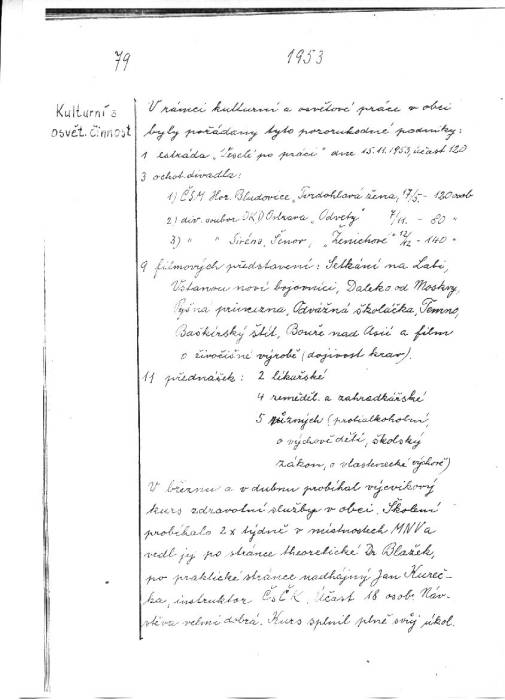 79
1953
Kulturní a
osvět. činnost
V rámci kulturní a osvětové práce v obci
byly pořádany tyto pozoruhodné podniky:
1 estráda „Veselé po práci" dne 15.11.1953, účast 120
3 ochot. divadla:
1) ČSM Hor. Bludovice „Tvrdohlavá žena, 17/5 - 120 osob
2) div. soubor OKD Ostrava „Odvety" 7/11. - 80 "
3) " " Siréna, Šenov, „Ženichové" 12/12 - 140 "
9 filmových představení: Setkání na Labi,
Vstanou noví bojovníci, Daleko od Moskvy,
Pyšná princezna, Odvážná školačka, Temno,
Baškirský štít, Bouře nad Asií a film
o živočišné výrobě (dojivost krav).
11 přednášek: 2 lékařské
4 zeměděl. a zahradkářské
5 různých (protialkoholní,
o výchově dětí, školský
zákon, o vlastenecké výchově)
V březnu a v dubnu probíhal výcvikový
kurs zdravotní služby v obci. Školení
probíhalo 2x týdně v místnostech MNV a
vedl jej po stránce theoretické Dr Blažek,
po praktické stránce nadhájný Jan Kureč-
ka, instruktor ČsČK. Účast 18 osob. Náv-
štěva velmi dobrá. Kurs splnil plně svůj úkol.